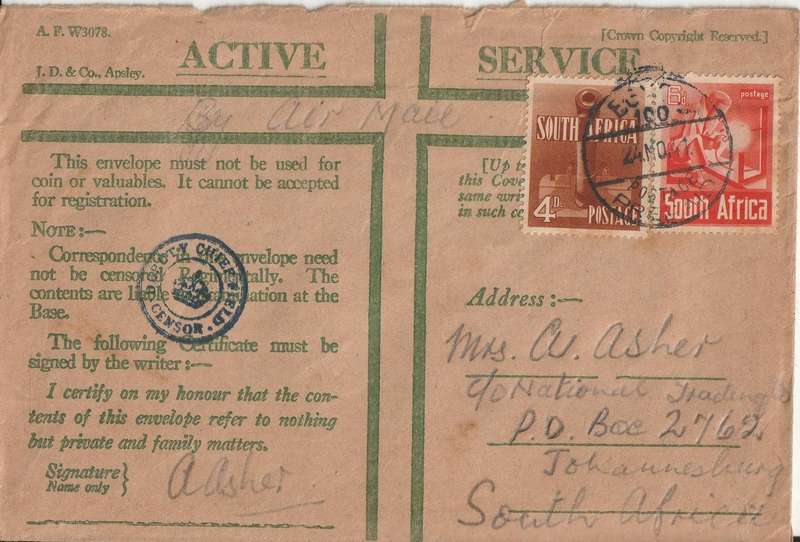 A. F. W3078.
[Crown Copyright Reserved.]
ACTIVE SERVICE
J. D. & Co., Apsley.
By Air Mail
This envelope must not be used for
coin or valuables. It cannot be accepted
for registration.
NOTE:—
Correspondence in envelope need
not be censored Regimentally. The
contents are liable examination at the
Base.
The following Certificate must be
signed by the writer:—
I certify on my honour that the con-
tents of this envelope refer to nothing
but private and family matters.
Signature
Name only
A Asher
DEPUTY CHIEF FIELD CENSOR
[Up to
this Cove
same wri
in such ce
SOUTH AFRICA
4D. POSTAGE
6d postage
South Africa
24 NO
Address:—
Mrs. A. Asher
c/o National Trading Co
P.O. Box 2762
Johannesburg
South Africa